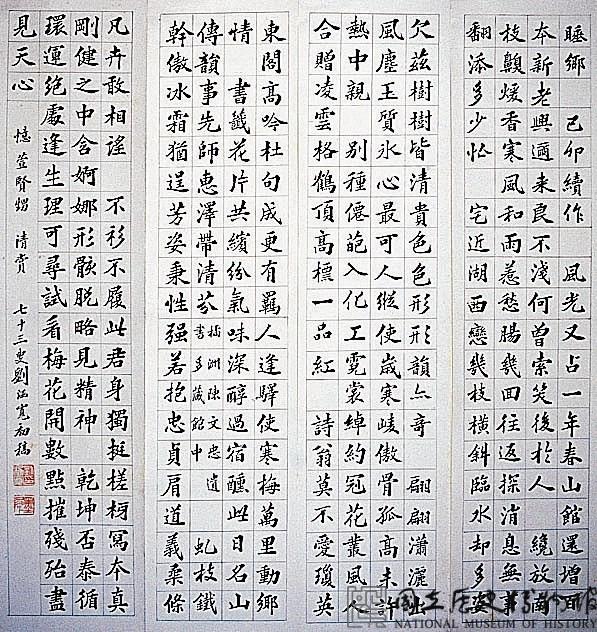 睡鄉　己卯續作　風光又占一年春山館還增面
本新老興適來良不淺何曾索笑後於人　繞放南
枝顛煖香寒風和雨惹愁腸幾回往返探消息無事
翻添多少忙　宅近湖西戀幾枝橫斜臨水却多姿
欠茲樹樹皆清貴色色形形韻亦奇　翩翩瀟灑出
風塵玉質冰心最可人縱使歲寒崚傲骨孤高未許
熱中親　別種僊葩入化工霓裳綽約冠花叢風人
合贈凌雲格鶴頂高標一品紅　詩翁莫不愛瓊英
東閣高吟杜句成更有羈人逢驛使寒梅萬里動鄉
情　書籤花片共繽紛氣味深醇過宿醺此日名山
傳韻事先師惠澤帶清芬　陳文忠遺書多藏館中　虬枝鐵
幹傲冰霜猶逞芳姿秉性强若抱忠貞肩道義柔條
凡卉敢相謠　不衫不履此君身獨挺槎枒寫本真
剛健之中含婀娜形骸脫略見精神　乾坤否泰循
環運絕處逢生理可尋試看梅花開數點摧殘殆盡
見天心　憶萱賢甥　清賞　七十三叟劉寬初稿
國立歷史博物館
NATIONAL MUSEUM OF HISTORY